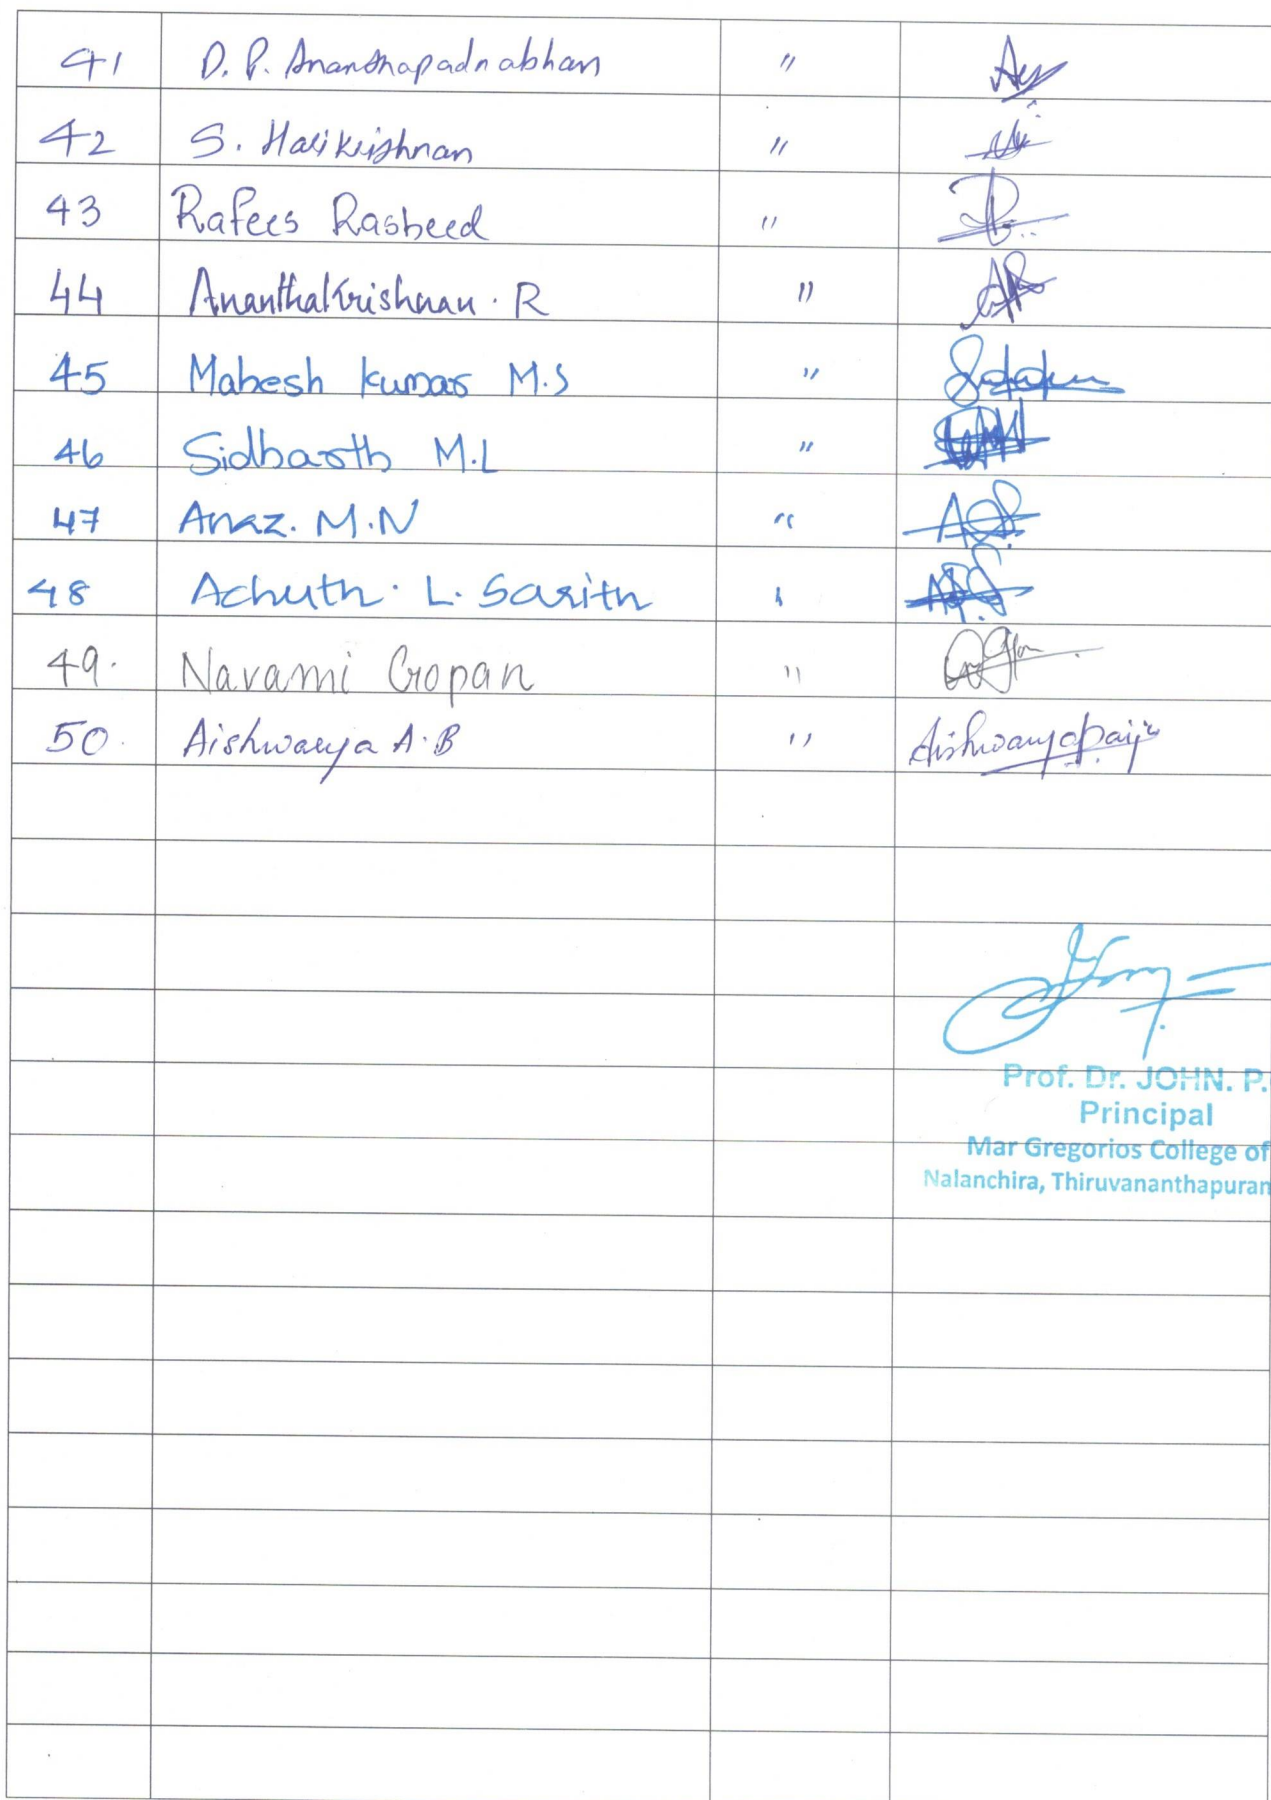 41 D. P. Ananthapadnabhan "
42 S. Harikrishnan "
43 Rafees Rasheed "
44 Ananthakrishnan . R "
45 Mahesh kumar M.S "
46 Sidharth M.L "
47 Anaz. M.N "
48 Achuth . L. Sarith "
49. Navami Gopan "
50. Aishwarya A.B " Aishwaryapaiju
Prof. Dr. JOHN. P.
Principal
Mar Gregorios College of
Nalanchira, Thiruvananthapuram